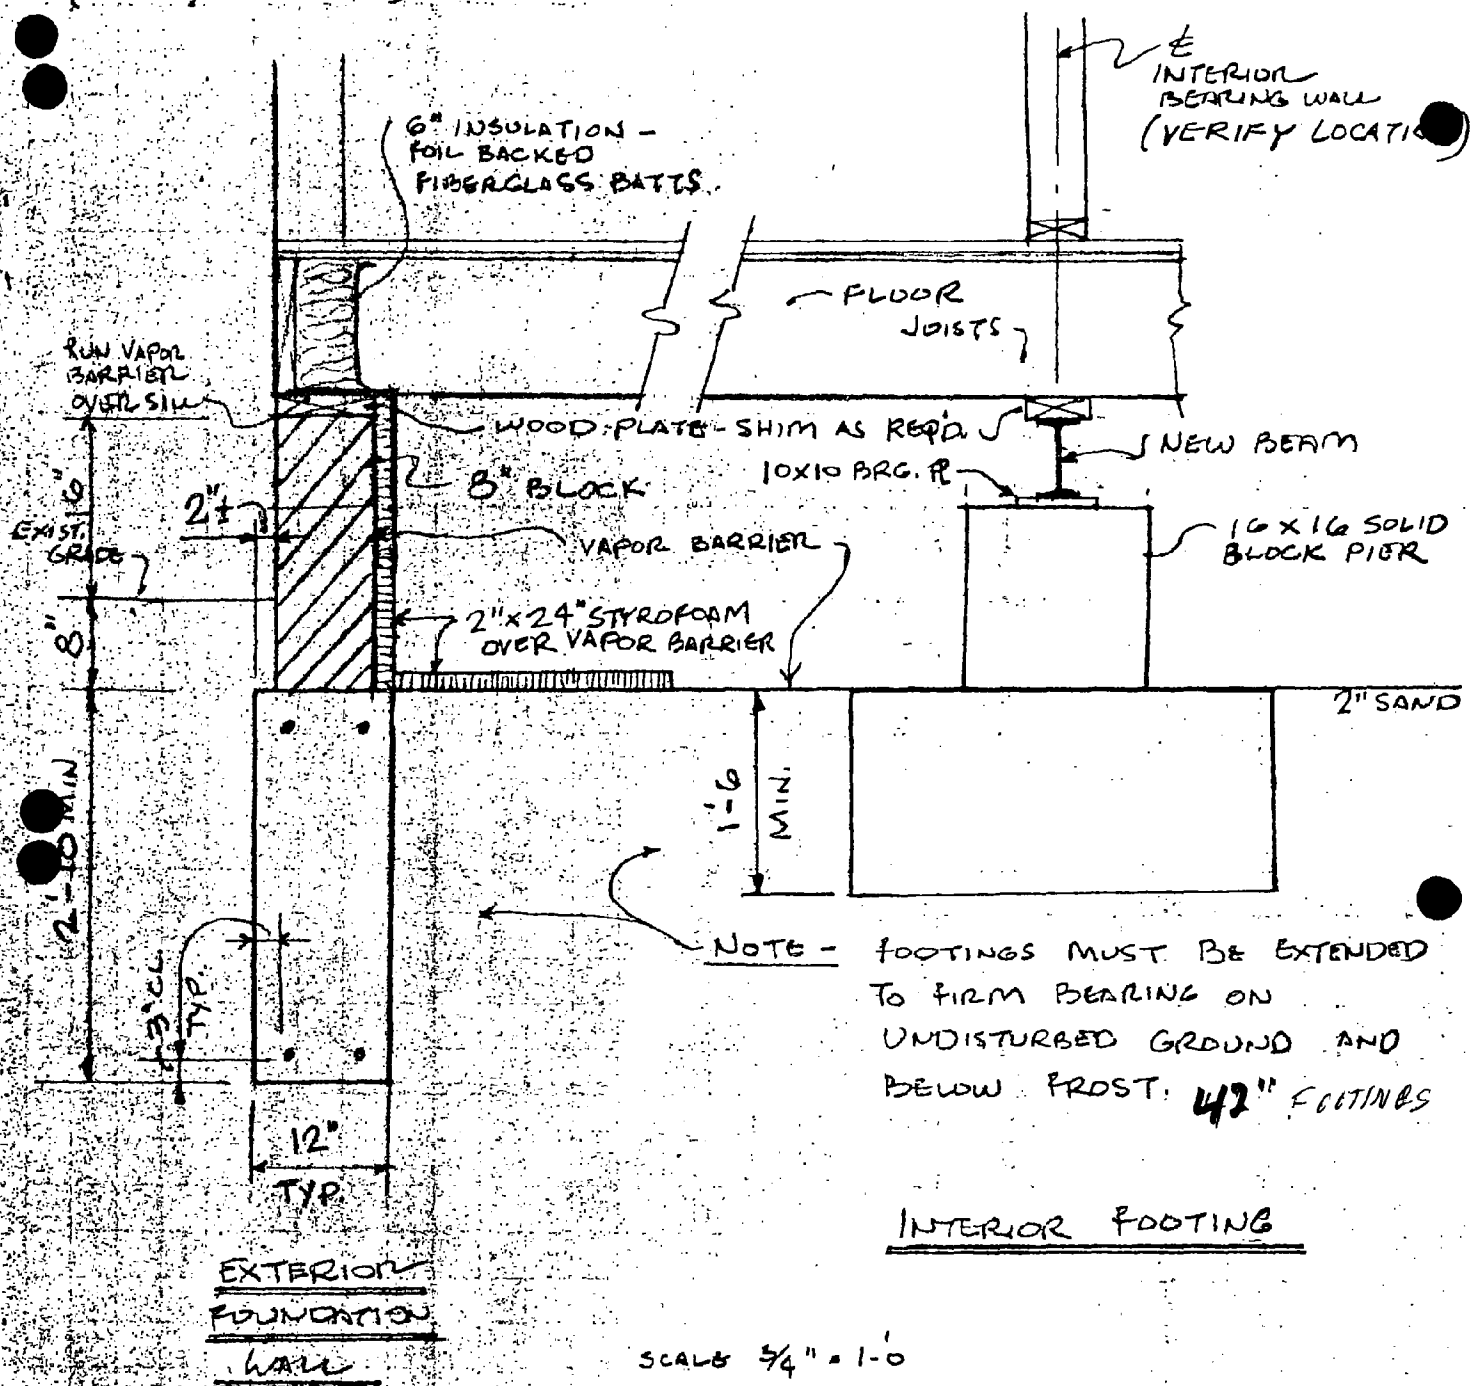 ℄
INTERIOR
BEARING WALL
(VERIFY LOCATION)
6" INSULATION -
FOIL BACKED
FIBERGLASS BATTS.
FLOOR
JOISTS
RUN VAPOR
BARRIER
OVER SILL
WOOD PLATE - SHIM AS REQ'D.
NEW BEAM
10X10 BRG. ℙL
8" BLOCK
16"
2"±
EXIST.
GRADE
VAPOR BARRIER
16 X 16 SOLID
BLOCK PIER
8"
2" X 24" STYROFOAM
OVER VAPOR BARRIER
2" SAND
2'-10 MIN
1'-6
MIN.
NOTE - FOOTINGS MUST BE EXTENDED
TO FIRM BEARING ON
UNDISTURBED GROUND AND
BELOW FROST. 42" FOOTINGS
3" CL.
TYP.
12"
TYP.
INTERIOR FOOTING
EXTERIOR
FOUNDATION
WALL
SCALE 3/4" = 1'-0